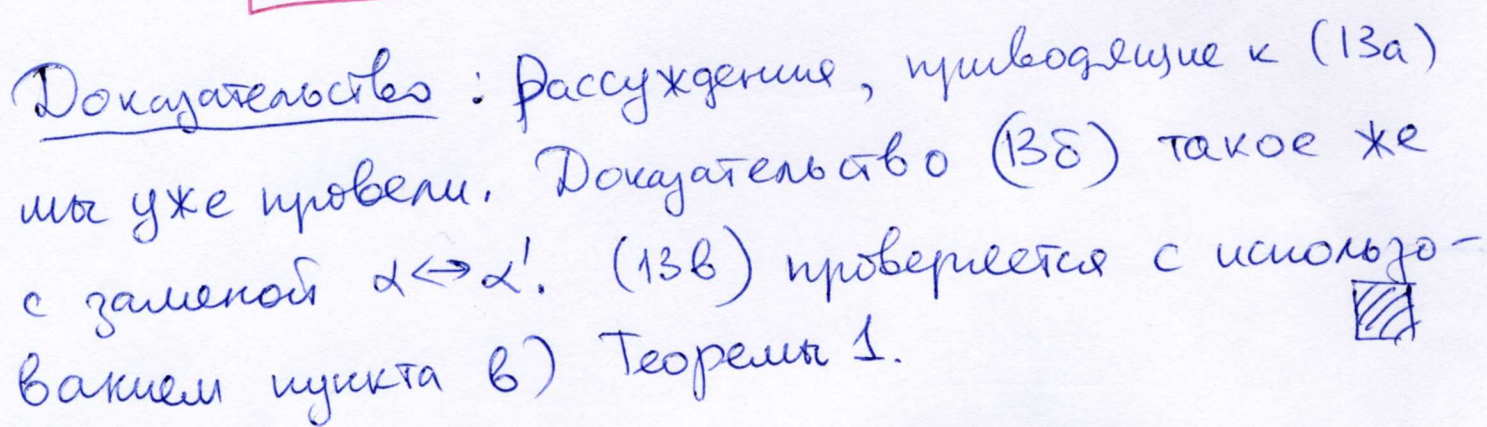 Доказательство : Рассуждения, приводящие к (13а)
мы уже провели. Доказательство (13б) такое же
с заменой α↔α'. (13в) проверяется с использо-
ванием пункта в) Теоремы 1.